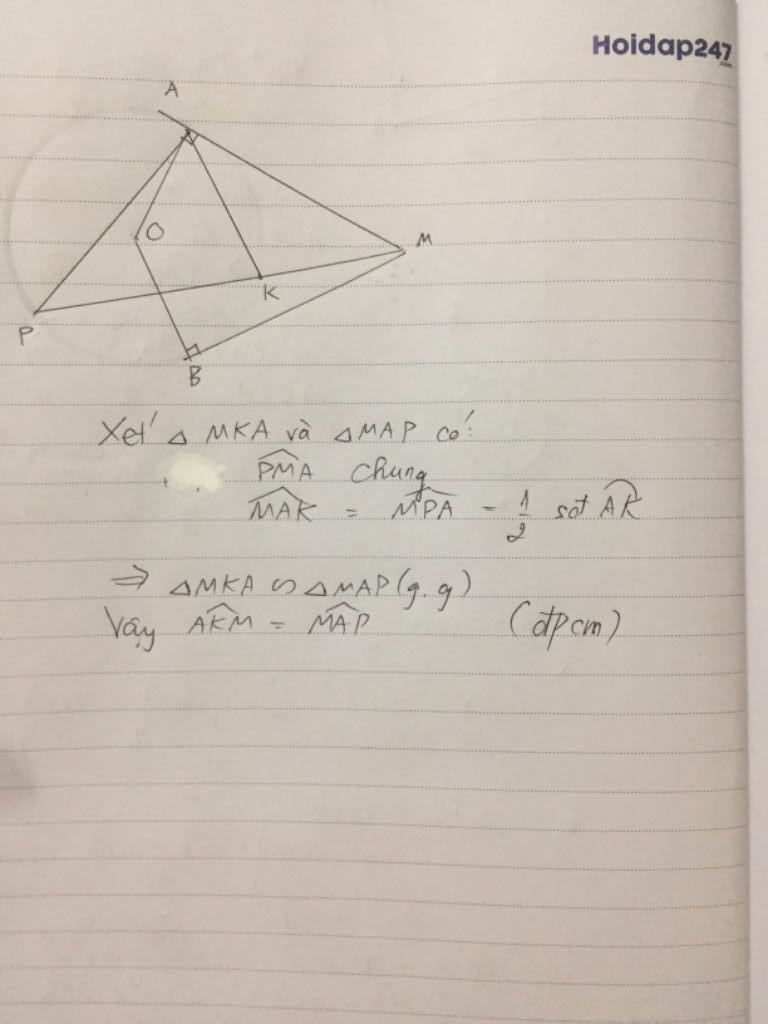 Hoidap247
.com
A
O
M
K
P
B
Xét △ MKA và △MAP có:
PMA chung
MAK = MPA = 1/2 sđt AK
⇒ △MKA ∽ △MAP (g.g)
Vậy AKM = MAP (đpcm)